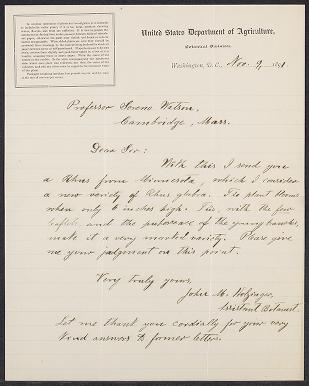 United States Department of Agriculture,
Botanical Division,
Washington, D. C., Nov. 9, 1891
Professor Sereno Watson,
Cambridge, Mass.
Dear Sir:
With this I send you
a Rhus from Minnesota, which I consider
a new variety of Rhus glabra. The plant blooms
when only 6 inches high. This, with the few
leaflets, and the pubescence of the young branches,
make it a very marked variety. Please give
me your judgment on this point.
Very truly yours,
John M. Holzinger,
Assistant Botanist.
Let me thank you cordially for your very
kind answers to former letters.